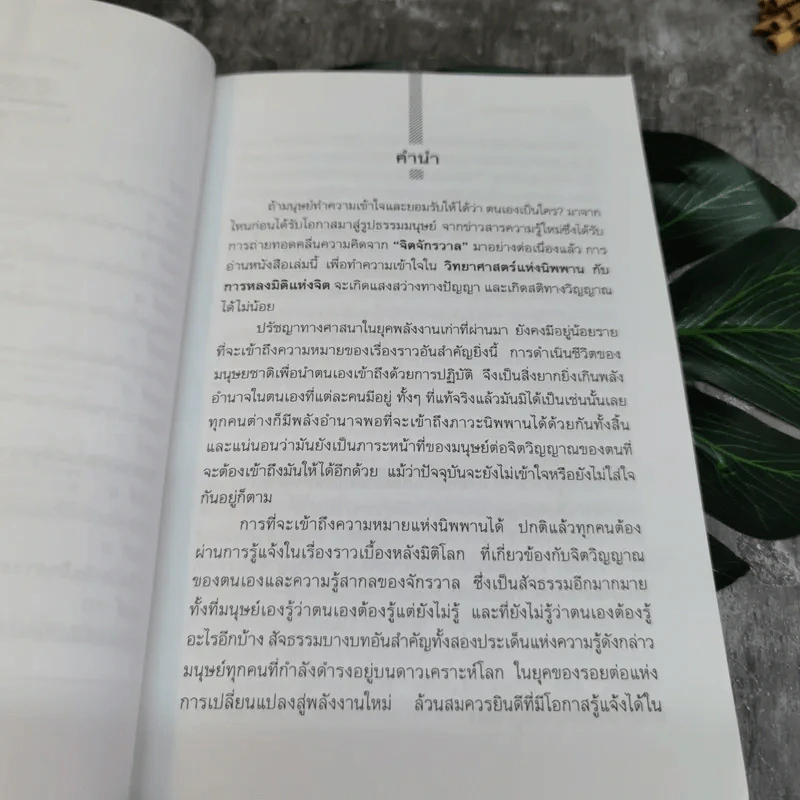 คำนำ
ถ้ามนุษย์ทำความเข้าใจและยอมรับให้ได้ว่า ตนเองเป็นใคร? มาจาก
ไหนก่อนได้รับโอกาสมาสู่รูปธรรมมนุษย์ จากข่าวสารความรู้ใหม่ซึ่งได้รับ
การถ่ายทอดคลื่นความคิดจาก “จิตจักรวาล” มาอย่างต่อเนื่องแล้ว การ
อ่านหนังสือเล่มนี้ เพื่อทำความเข้าใจใน วิทยาศาสตร์แห่งนิพพาน กับ
การหลงมิติแห่งจิต จะเกิดแสงสว่างทางปัญญา และเกิดสติทางวิญญาณ
ได้ไม่น้อย
ปรัชญาทางศาสนาในยุคพลังงานเก่าที่ผ่านมา ยังคงมีอยู่น้อยราย
ที่จะเข้าถึงความหมายของเรื่องราวอันสำคัญยิ่งนี้ การดำเนินชีวิตของ
มนุษยชาติเพื่อนำตนเองเข้าถึงด้วยการปฏิบัติ จึงเป็นสิ่งยากยิ่งเกินพลัง
อำนาจในตนเองที่แต่ละคนมีอยู่ ทั้งๆ ที่แท้จริงแล้วมันมิได้เป็นเช่นนั้นเลย
ทุกคนต่างก็มีพลังอำนาจพอที่จะเข้าถึงภาวะนิพพานได้ด้วยกันทั้งสิ้น
และแน่นอนว่ามันยังเป็นภาระหน้าที่ของมนุษย์ต่อจิตวิญญาณของตนที่
จะต้องเข้าถึงมันให้ได้อีกด้วย แม้ว่าปัจจุบันจะยังไม่เข้าใจหรือยังไม่ใส่ใจ
กันอยู่ก็ตาม
การที่จะเข้าถึงความหมายแห่งนิพพานได้ ปกติแล้วทุกคนต้อง
ผ่านการรู้แจ้งในเรื่องราวเบื้องหลังมิติโลก ที่เกี่ยวข้องกับจิตวิญญาณ
ของตนเองและความรู้สากลของจักรวาล ซึ่งเป็นสัจธรรมอีกมากมาย
ทั้งที่มนุษย์เองรู้ว่าตนเองต้องรู้แต่ยังไม่รู้ และที่ยังไม่รู้ว่าตนเองต้องรู้
อะไรอีกบ้าง สัจธรรมบางบทอันสำคัญทั้งสองประเด็นแห่งความรู้ดังกล่าว
มนุษย์ทุกคนที่กำลังดำรงอยู่บนดาวเคราะห์โลก ในยุคของรอยต่อแห่ง
การเปลี่ยนแปลงสู่พลังงานใหม่ ล้วนสมควรยินดีที่มีโอกาสรู้แจ้งได้ใน